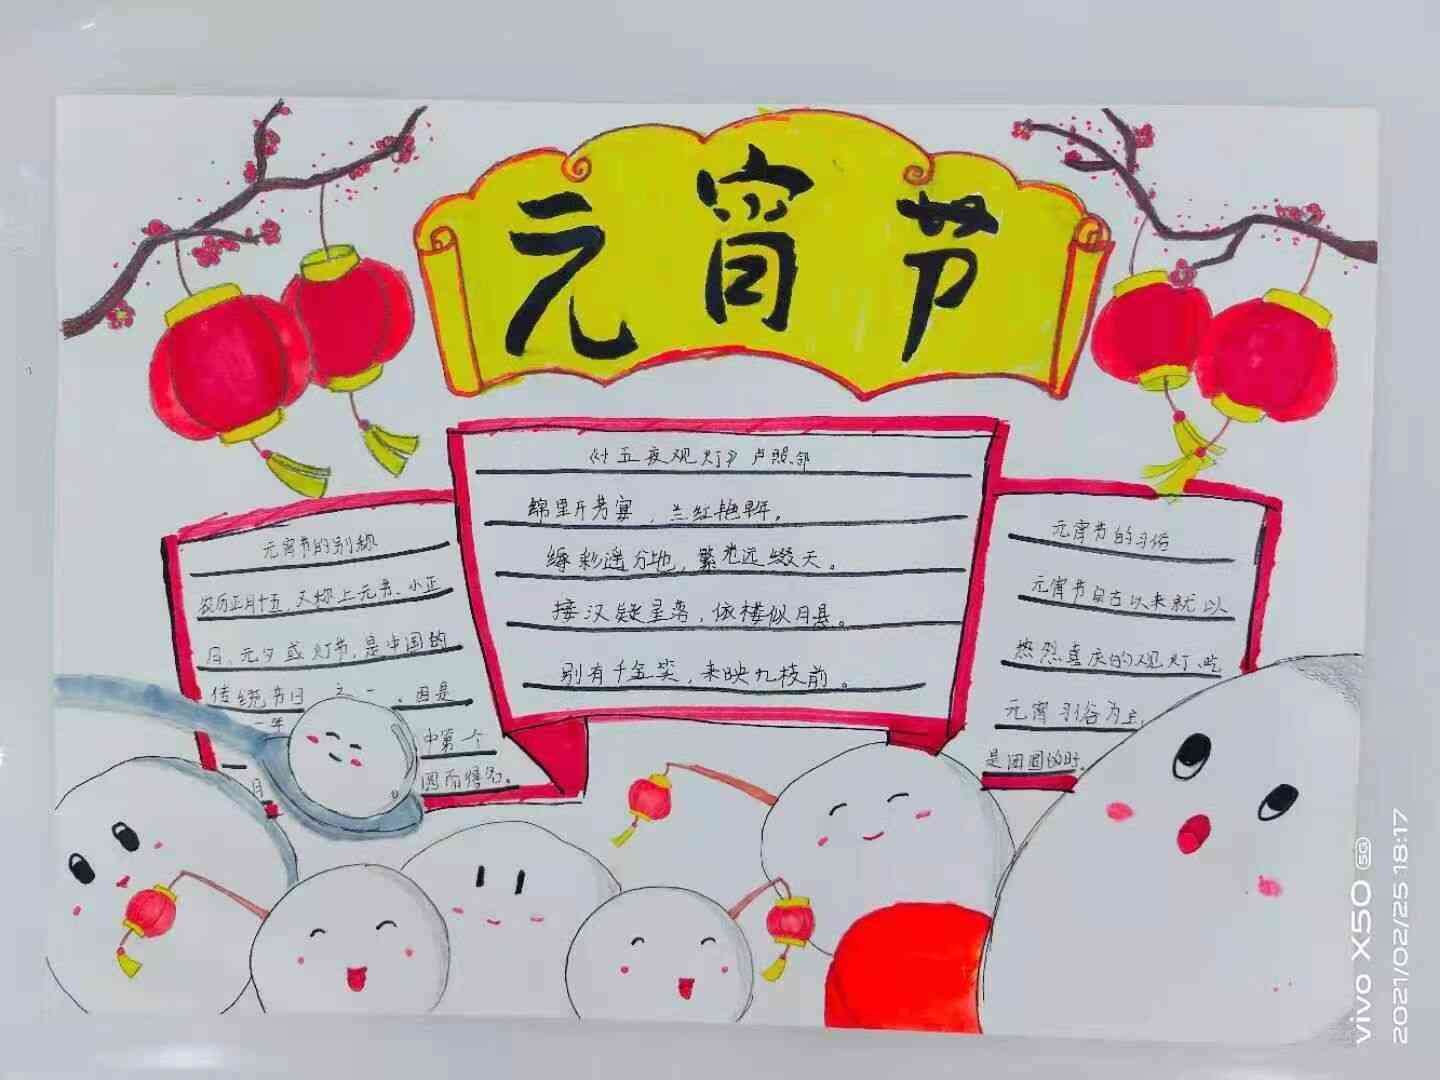 元宵节
元宵节的别称
农历正月十五，又称上元节、小正
月、元夕或灯节，是中国的
传统节日之一。因是
一年
中第一个
月
圆而得名。
《十五夜观灯》卢照邻
锦里开芳宴，兰红艳早年。
缛彩遥分地，繁光远缀天。
接汉疑星落，依楼似月悬。
别有千金笑，来映九枝前。
元宵节的习俗
元宵节自古以来就以
热烈喜庆的观灯、吃
元宵习俗为主，
是团圆的时。
vivo X50 5G
2021/02/25 18:17